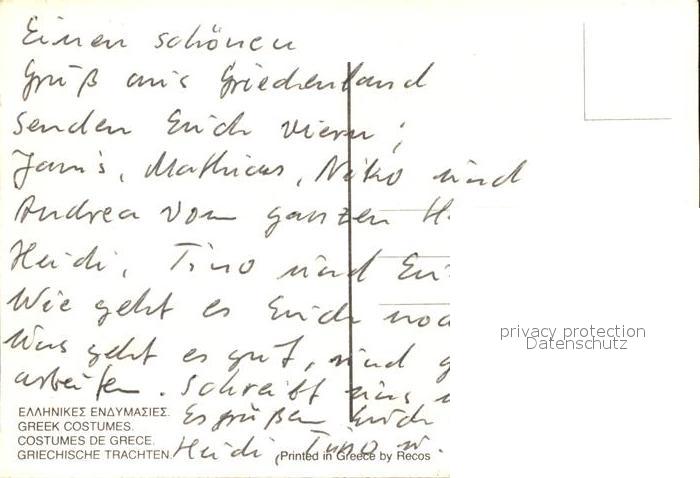 Einen schönen
Gruß aus Griechenland
senden Euch vieru;
Janis, Mathias, Niko und
Andrea vom ganzen H.
Heidi, Tino und
Wie geht es Euch noc
Uns geht es gut, sind g
arbeiten. Schreibt uns
Es grüßen Euch
Heidi Tino u.
ΕΛΛΗΝΙΚΕΣ ΕΝΔΥΜΑΣΙΕΣ.
GREEK COSTUMES.
COSTUMES DE GRECE.
GRIECHISCHE TRACHTEN.
(Printed in Greece by Recos
privacy protection
Datenschutz